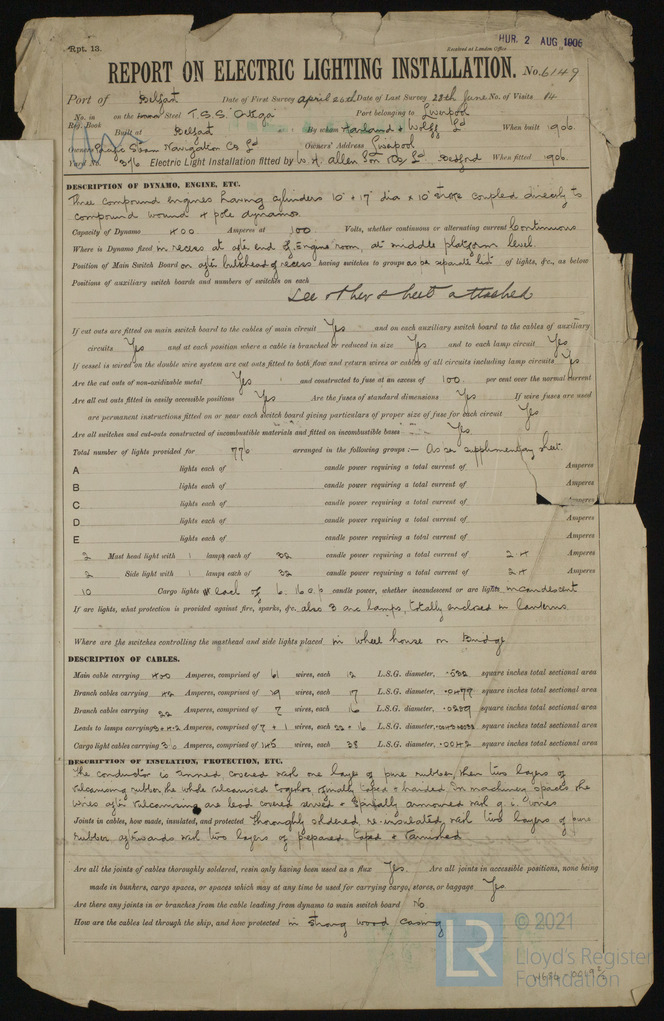 Rpt. 13.
Received at London Office
THUR. 2 AUG 1906
REPORT ON ELECTRIC LIGHTING INSTALLATION. No. 6149
Port of Belfast Date of First Survey April 20th Date of Last Survey 28th June No. of Visits 14
No. in Reg. Book on the Iron or Steel T.S.S. Ortega Port belonging to Liverpool
Built at Belfast By whom Harland & Wolff Ld When built 1906
Owners Pacific Steam Navigation Co Ld Owners' Address Liverpool
Yard No. 376 Electric Light Installation fitted by W. H. Allen Son & Co Ld Bedford When fitted 1906
DESCRIPTION OF DYNAMO, ENGINE, ETC.
Three compound engines having cylinders 10" & 17" dia x 10" stroke coupled directly to
compound wound 4 pole dynamos
Capacity of Dynamo 400 Amperes at 100 Volts, whether continuous or alternating current Continuous
Where is Dynamo fixed in recess at after end of Engine room, at middle platform level.
Position of Main Switch Board on after bulkhead of recess having switches to groups as per separate list of lights, &c., as below
Positions of auxiliary switch boards and numbers of switches on each
See other sheet attached
If cut outs are fitted on main switch board to the cables of main circuit Yes and on each auxiliary switch board to the cables of auxiliary
circuits Yes and at each position where a cable is branched or reduced in size Yes and to each lamp circuit Yes
If vessel is wired on the double wire system are cut outs fitted to both flow and return wires or cables of all circuits including lamp circuits Yes
Are the cut outs of non-oxidizable metal Yes and constructed to fuse at an excess of 100 per cent over the normal current
Are all cut outs fitted in easily accessible positions Yes Are the fuses of standard dimensions Yes If wire fuses are used
are permanent instructions fitted on or near each switch board giving particulars of proper size of fuse for each circuit Yes
Are all switches and cut-outs constructed of incombustible materials and fitted on incombustible bases Yes
Total number of lights provided for 776 arranged in the following groups :— As per supplimentary sheet.
A lights each of candle power requiring a total current of Amperes
B lights each of candle power requiring a total current of Amperes
C lights each of candle power requiring a total current of Amperes
D lights each of candle power requiring a total current of Amperes
E lights each of candle power requiring a total current of Amperes
2 Mast head light with 1 lamps each of 32 candle power requiring a total current of 2.4 Amperes
2 Side light with 1 lamps each of 32 candle power requiring a total current of 2.4 Amperes
10 Cargo lights each of 6 16 c.p candle power, whether incandescent or arc lights incandescent
If arc lights, what protection is provided against fire, sparks, &c. also 3 arc lamps, totally enclosed in lanterns
Where are the switches controlling the masthead and side lights placed in wheel house on Bridge
DESCRIPTION OF CABLES.
Main cable carrying 400 Amperes, comprised of 61 wires, each 12 L.S.G. diameter, .532 square inches total sectional area
Branch cables carrying 42 Amperes, comprised of 19 wires, each 17 L.S.G. diameter, .0477 square inches total sectional area
Branch cables carrying 22 Amperes, comprised of 7 wires, each 16 L.S.G. diameter, .0289 square inches total sectional area
Leads to lamps carrying Amperes, comprised of 7 & 1 wires, each 22 & 16 L.S.G. diameter, square inches total sectional area
Cargo light cables carrying 3.6 Amperes, comprised of 145 wires, each 38 L.S.G. diameter, .0042 square inches total sectional area
DESCRIPTION OF INSULATION, PROTECTION, ETC.
The conductor is tinned covered with one layer of pure rubber, then two layers of
vulcanising rubber, the whole vulcanised together, finally taped & braided. In machinery spaces the
wires after vulcanising are lead covered served & spirally armoured with g.i. wires
Joints in cables, how made, insulated, and protected Thoroughly soldered, re-insulated, with two layers of pure
rubber, afterwards with two layers of prepared taped & varnished
Are all the joints of cables thoroughly soldered, resin only having been used as a flux Yes. Are all joints in accessible positions, none being
made in bunkers, cargo spaces, or spaces which may at any time be used for carrying cargo, stores, or baggage Yes
Are there any joints in or branches from the cable leading from dynamo to main switch board No.
How are the cables led through the ship, and how protected in strong wood casing
© 2021
LR
Lloyd's Register
Foundation